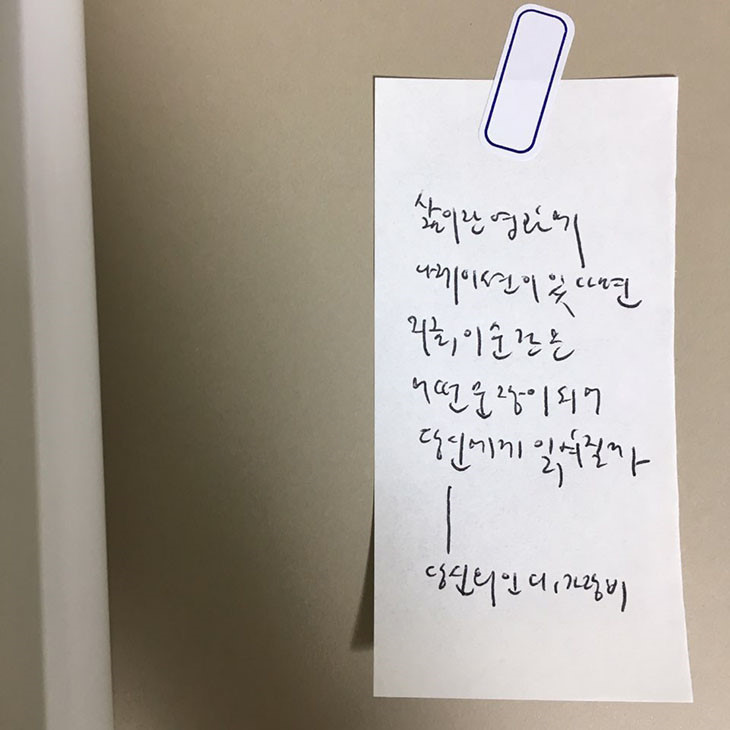 삶이란 영화에
나레이션이 있다면
지금, 이 순간은
어떤 문장이 되어
당신에게 읽혀질까
당신의 인디, 가랑비